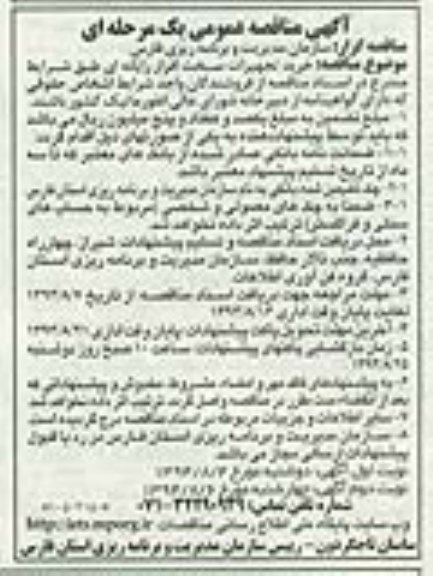 آگهی مناقصه عمومی یک مرحله ای
مناقصه گزار: سازمان مدیریت و برنامه ریزی فارس
موضوع مناقصه: خرید تجهیزات سخت افزار رایانه ای طبق شرایط
مندرج در اسناد مناقصه از فروشندگان واجد شرایط اشخاص حقوقی
که دارای گواهینامه از دبیرخانه شورای عالی انفورماتیک کشور باشند.
۱- مبلغ تضمین به مبلغ یکصد و هفتاد و پنج میلیون ریال می باشد
که باید توسط پیشنهاددهنده به یکی از صورتهای ذیل اقدام گردد.
۱-۱- ضمانت نامه بانکی صادر شده از بانک های معتبر که تا سه
ماه از تاریخ تسلیم پیشنهاد معتبر باشد.
۲-۱- چک تضمین شده بانکی به نام سازمان مدیریت و برنامه ریزی استان فارس
۳-۱- ضمناً به چک های معمولی و شخصی (مربوط به حساب های
محلی و فراگستر) ترتیب اثر داده نخواهد شد.
۲- محل دریافت اسناد مناقصه و تسلیم پیشنهادات: شیراز، چهارراه
حافظیه، جنب تالار حافظ، سازمان مدیریت و برنامه ریزی استان
فارس، گروه فن آوری اطلاعات
۳- مهلت مراجعه جهت دریافت اسناد مناقصه از تاریخ ۱۳۹۳/۸/۷
لغایت پایان وقت اداری ۱۳۹۳/۸/۱۳
۴- آخرین مهلت تحویل پاکت پیشنهادات: پایان وقت اداری ۱۳۹۳/۸/۲۱
۵- زمان بازگشایی پاکتهای پیشنهادات: ساعت ۱۰ صبح روز
۱۳۹۳/۸/۲۵
۶- به پیشنهادهای فاقد مهر و امضاء، مشروط، مخدوش و پیشنهاداتی که
بعد از انقضاء مدت مقرر در مناقصه واصل گردد، ترتیب اثر داده نخواهد شد.
۷- سایر اطلاعات و جزییات مربوطه در اسناد مناقصه درج گردیده است.
۸- سازمان مدیریت و برنامه ریزی استان فارس در رد یا قبول
پیشنهادات ارسالی مجاز می باشد.
نوبت اول آگهی: دوشنبه مورخ
نوبت دوم آگهی: چهارشنبه مورخ
شماره تلفن تماس: ۳۲۲۹۰۹۳۹-۰۷۱
وب سایت پایگاه ملی اطلاع رسانی مناقصات: http://iets.mporg.ir
ساسان تاجگردون - رییس سازمان مدیریت و برنامه ریزی استان فارس